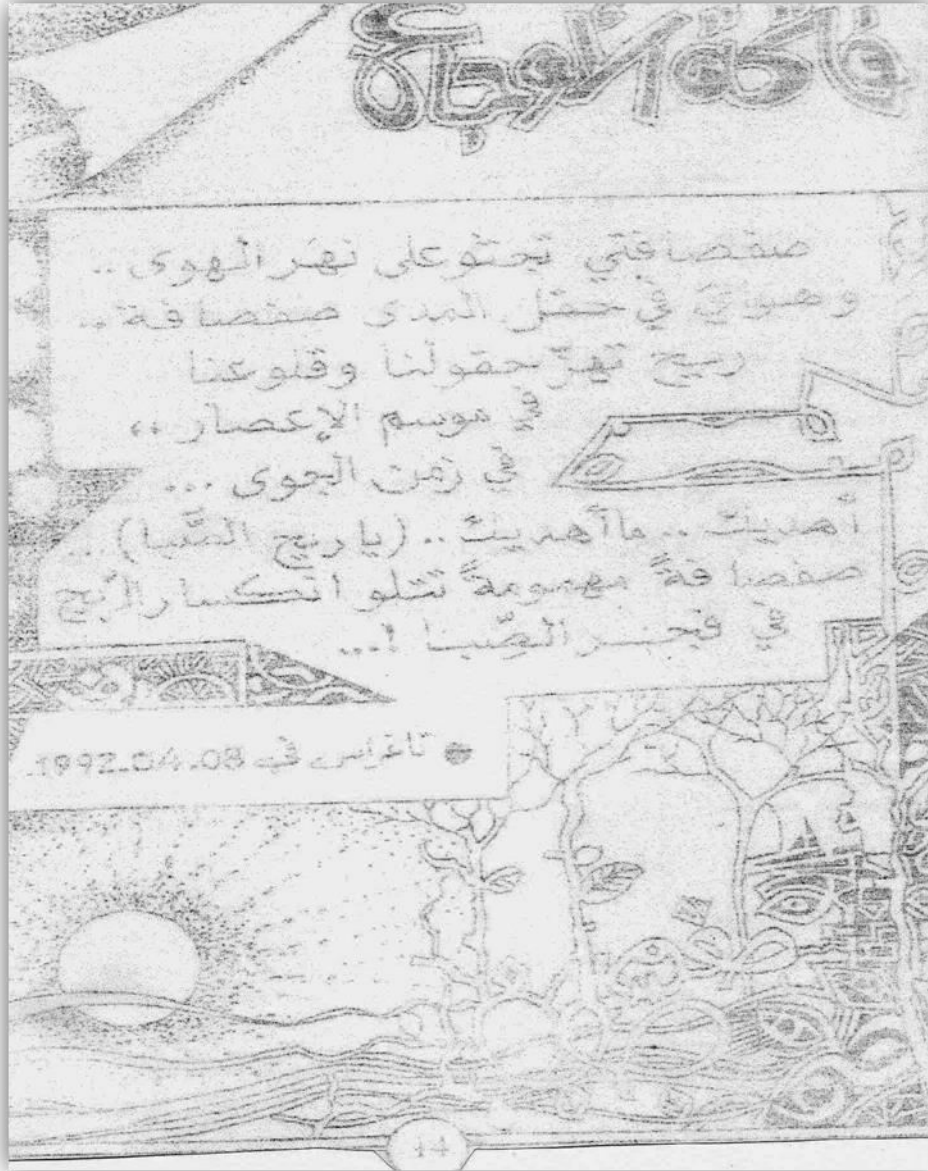 صفصافتي تجثو على نهر الهوى ..
وهبوبي في حقل المدى صفصافة ..
ريح تهزّ حقولنا وقلوعنا
في موسم الإعصار ،،
في زمن الجوى ...
أهديتك .. ما أهديتك .. (يا ريح الصَّبا) ...
صفصافةً مهمومةً تتلو انكسار الرّيح
في فجر الصِّبا !...
● تاغراس في 1992.04.08.
14